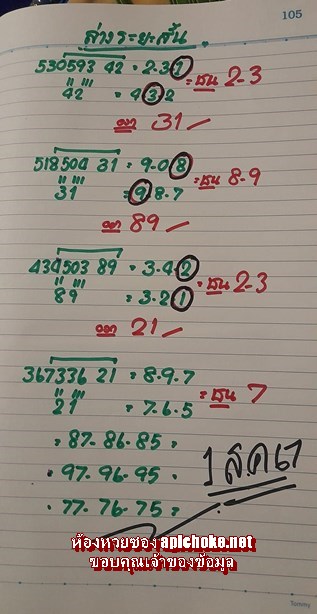 105
ล่างระยะสั้น
530593 42 = 2-3-1 = เน้น 2-3
42 = 4 3 2
ออก 31
518504 31 = 9-0-8 = เน้น 8-9
31 = 9-8-7
ออก 89
434503 89 = 3-4-2 = เน้น 2-3
89 = 3-2-1
ออก 21
367336 21 = 8-9-7 = เน้น 7
21 = 7-6-5
= 87-86-85 =
1 ส.ค 67
= 97-96-95 =
= 77-76-75 =
ห้องหวยซอง apichoke.net
ขอบคุณเจ้าของข้อมูล
Tommy